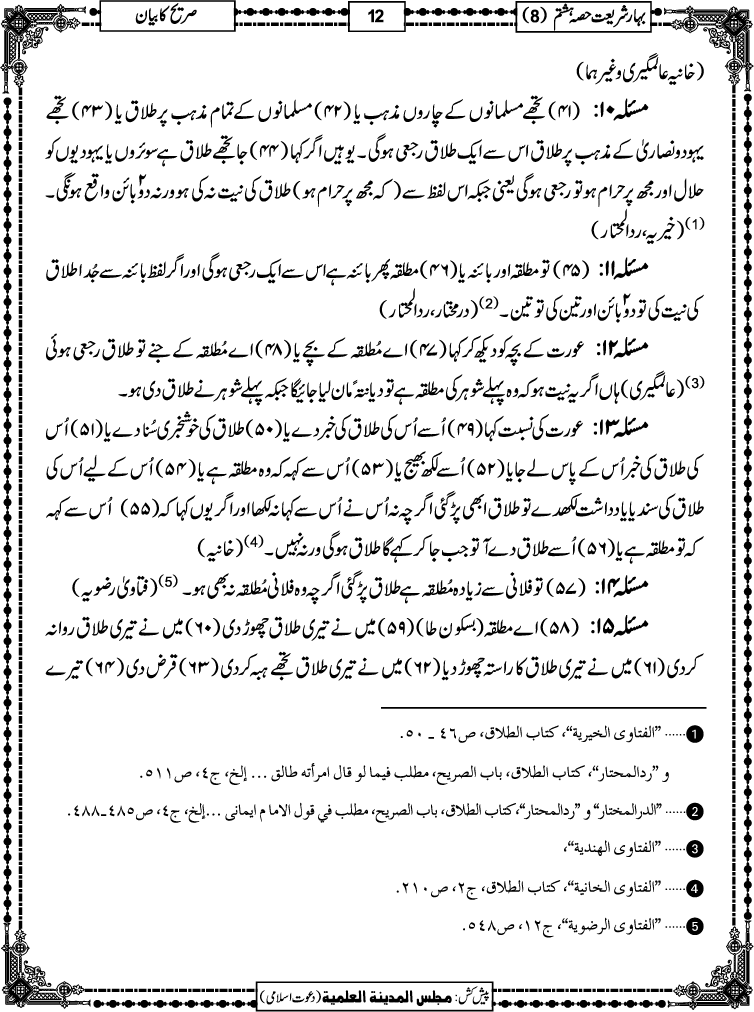 بہار شریعت حصہ ہشتم (8)
12
صریح کا بیان
(خانیہ عالمگیری وغیرہما)
مسئلہ۱۰: (۴۱) تجھے مسلمانوں کے چاروں مذہب یا (۴۲) مسلمانوں کے تمام مذہب پر طلاق یا (۴۳) تجھے
یہود و نصاریٰ کے مذہب پر طلاق اس سے ایک طلاق رجعی ہوگی۔ یوہیں اگر کہا (۴۴) جا تجھے طلاق ہے سوئروں یا یہودیوں کو
حلال اور مجھ پر حرام ہو تو رجعی ہوگی یعنی جبکہ اس لفظ سے ( کہ مجھ پر حرام ہو ) طلاق کی نیت نہ کی ہو ورنہ دو۲ بائن واقع ہونگی۔
(1) (خیریہ، ردالمحتار)
مسئلہ۱۱: (۴۵) تو مطلقہ اور بائنہ یا (۴۶) مطلقہ پھر بائنہ ہے اس سے ایک رجعی ہوگی اور اگر لفظ بائنہ سے جُدا طلاق
کی نیت کی تو دو۲ بائن اور تین کی تو تین۔ (2) (درمختار، ردالمحتار)
مسئلہ۱۲: عورت کے بچہ کو دیکھ کر کہا (۴۷) اے مُطلقہ کے بچے یا (۴۸) اے مُطلقہ کے جنے تو طلاق رجعی ہوئی
(3) (عالمگیری) ہاں اگر یہ نیت ہو کہ وہ پہلے شوہر کی مطلقہ ہے تو دیانتہً مان لیا جائیگا جبکہ پہلے شوہر نے طلاق دی ہو۔
مسئلہ۱۳: عورت کی نسبت کہا (۴۹) اُسے اُس کی طلاق کی خبر دے یا (۵۰) طلاق کی خوشخبری سُنا دے یا (۵۱) اُس
کی طلاق کی خبر اُس کے پاس لے جا یا (۵۲) اُسے لکھ بھیج یا (۵۳) اُس سے کہہ کہ وہ مطلقہ ہے یا (۵۴) اُس کے لیے اُس کی
طلاق کی سند یا یادداشت لکھدے تو طلاق ابھی پڑ گئی اگرچہ نہ اُس نے اُس سے کہا نہ لکھا اور اگر یوں کہا کہ (۵۵) اُس سے کہہ
کہ تو مطلقہ ہے یا (۵۶) اُسے طلاق دے آ تو جب جا کر کہے گا طلاق ہوگی ورنہ نہیں۔ (4) (خانیہ)
مسئلہ۱۴: (۵۷) تو فلانی سے زیادہ مُطلقہ ہے طلاق پڑ گئی اگرچہ وہ فلانی مُطلقہ نہ بھی ہو۔ (5) (فتاویٰ رضویہ)
مسئلہ۱۵: (۵۸) اے مطلقہ (بسکون طا) (۵۹) میں نے تیری طلاق چھوڑ دی (۶۰) میں نے تیری طلاق روانہ
کردی (۶۱) میں نے تیری طلاق کا راستہ چھوڑ دیا (۶۲) میں نے تیری طلاق تجھے ہبہ کر دی (۶۳) قرض دی (۶۴) تیرے
1 ...... ”الفتاوی الخیریة“، کتاب الطلاق، ص٤٦ ـ ٥٠.
و ”ردالمحتار“، کتاب الطلاق، باب الصریح، مطلب فیما لو قال امرأته طالق ... إلخ، ج٤، ص٥١١.
2 ...... ”الدرالمختار“ و ”ردالمحتار“،کتاب الطلاق، باب الصریح، مطلب فی قول الامام ایمانی ...إلخ، ج٤، ص٤٨٥ـ٤٨٨.
3 ...... ”الفتاوی الهندیة“،
4 ...... ”الفتاوی الخانیة“، کتاب الطلاق، ج٢، ص٢١٠.
5 ...... ”الفتاوی الرضویة“، ج١٢، ص٥٤٨.
پیش کش: مجلس المدینة العلمیة (دعوت اسلامی)